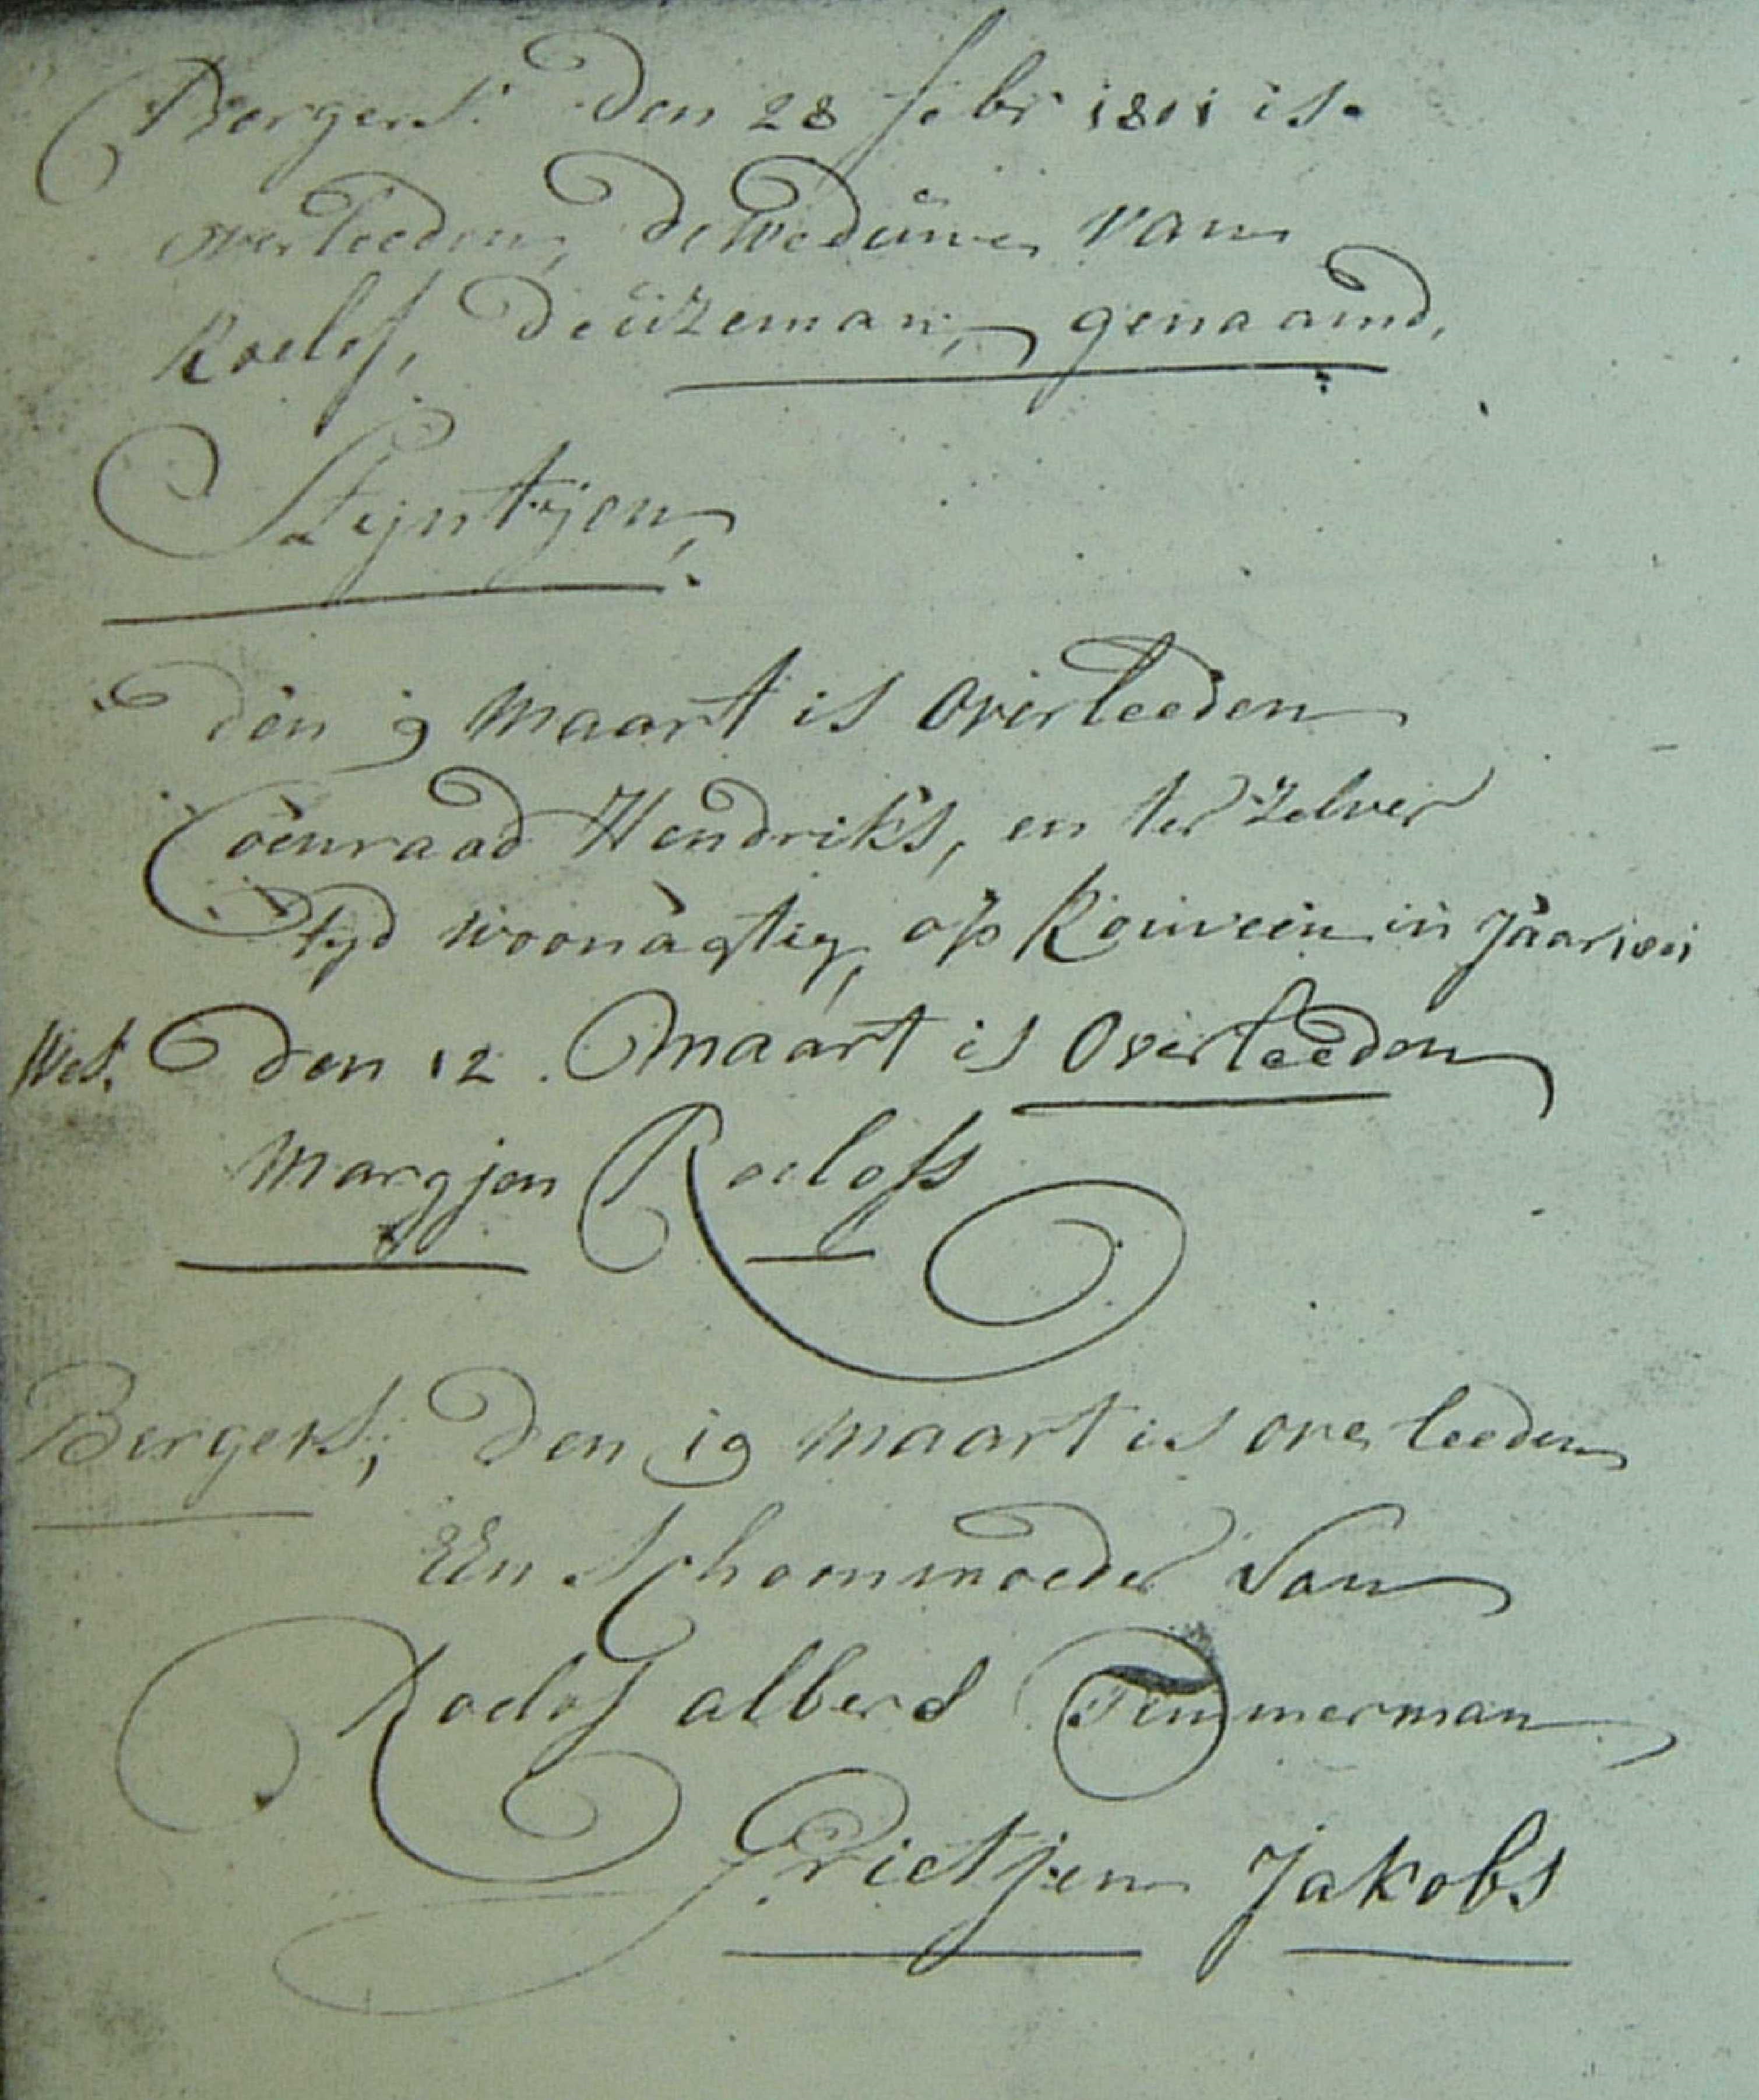 Bergers: Den 28 febr 1811 is
overleeden, de Weduwe van
Roelof, Deuzeman, genaamd,
Stijntjen,
den 9 maart is Overleeden
Coenraad Hendriks, en ter Zelver
tyd woonagtig, op Koiveen in Jaar 1811
Wes. den 12. maart is Overleeden
Margjen Roelofs
Bergers; Den 19 maart is overleeden
Een Schoonmoeder Van
Roelof alberd Timmerman
Grietjen Jakobs